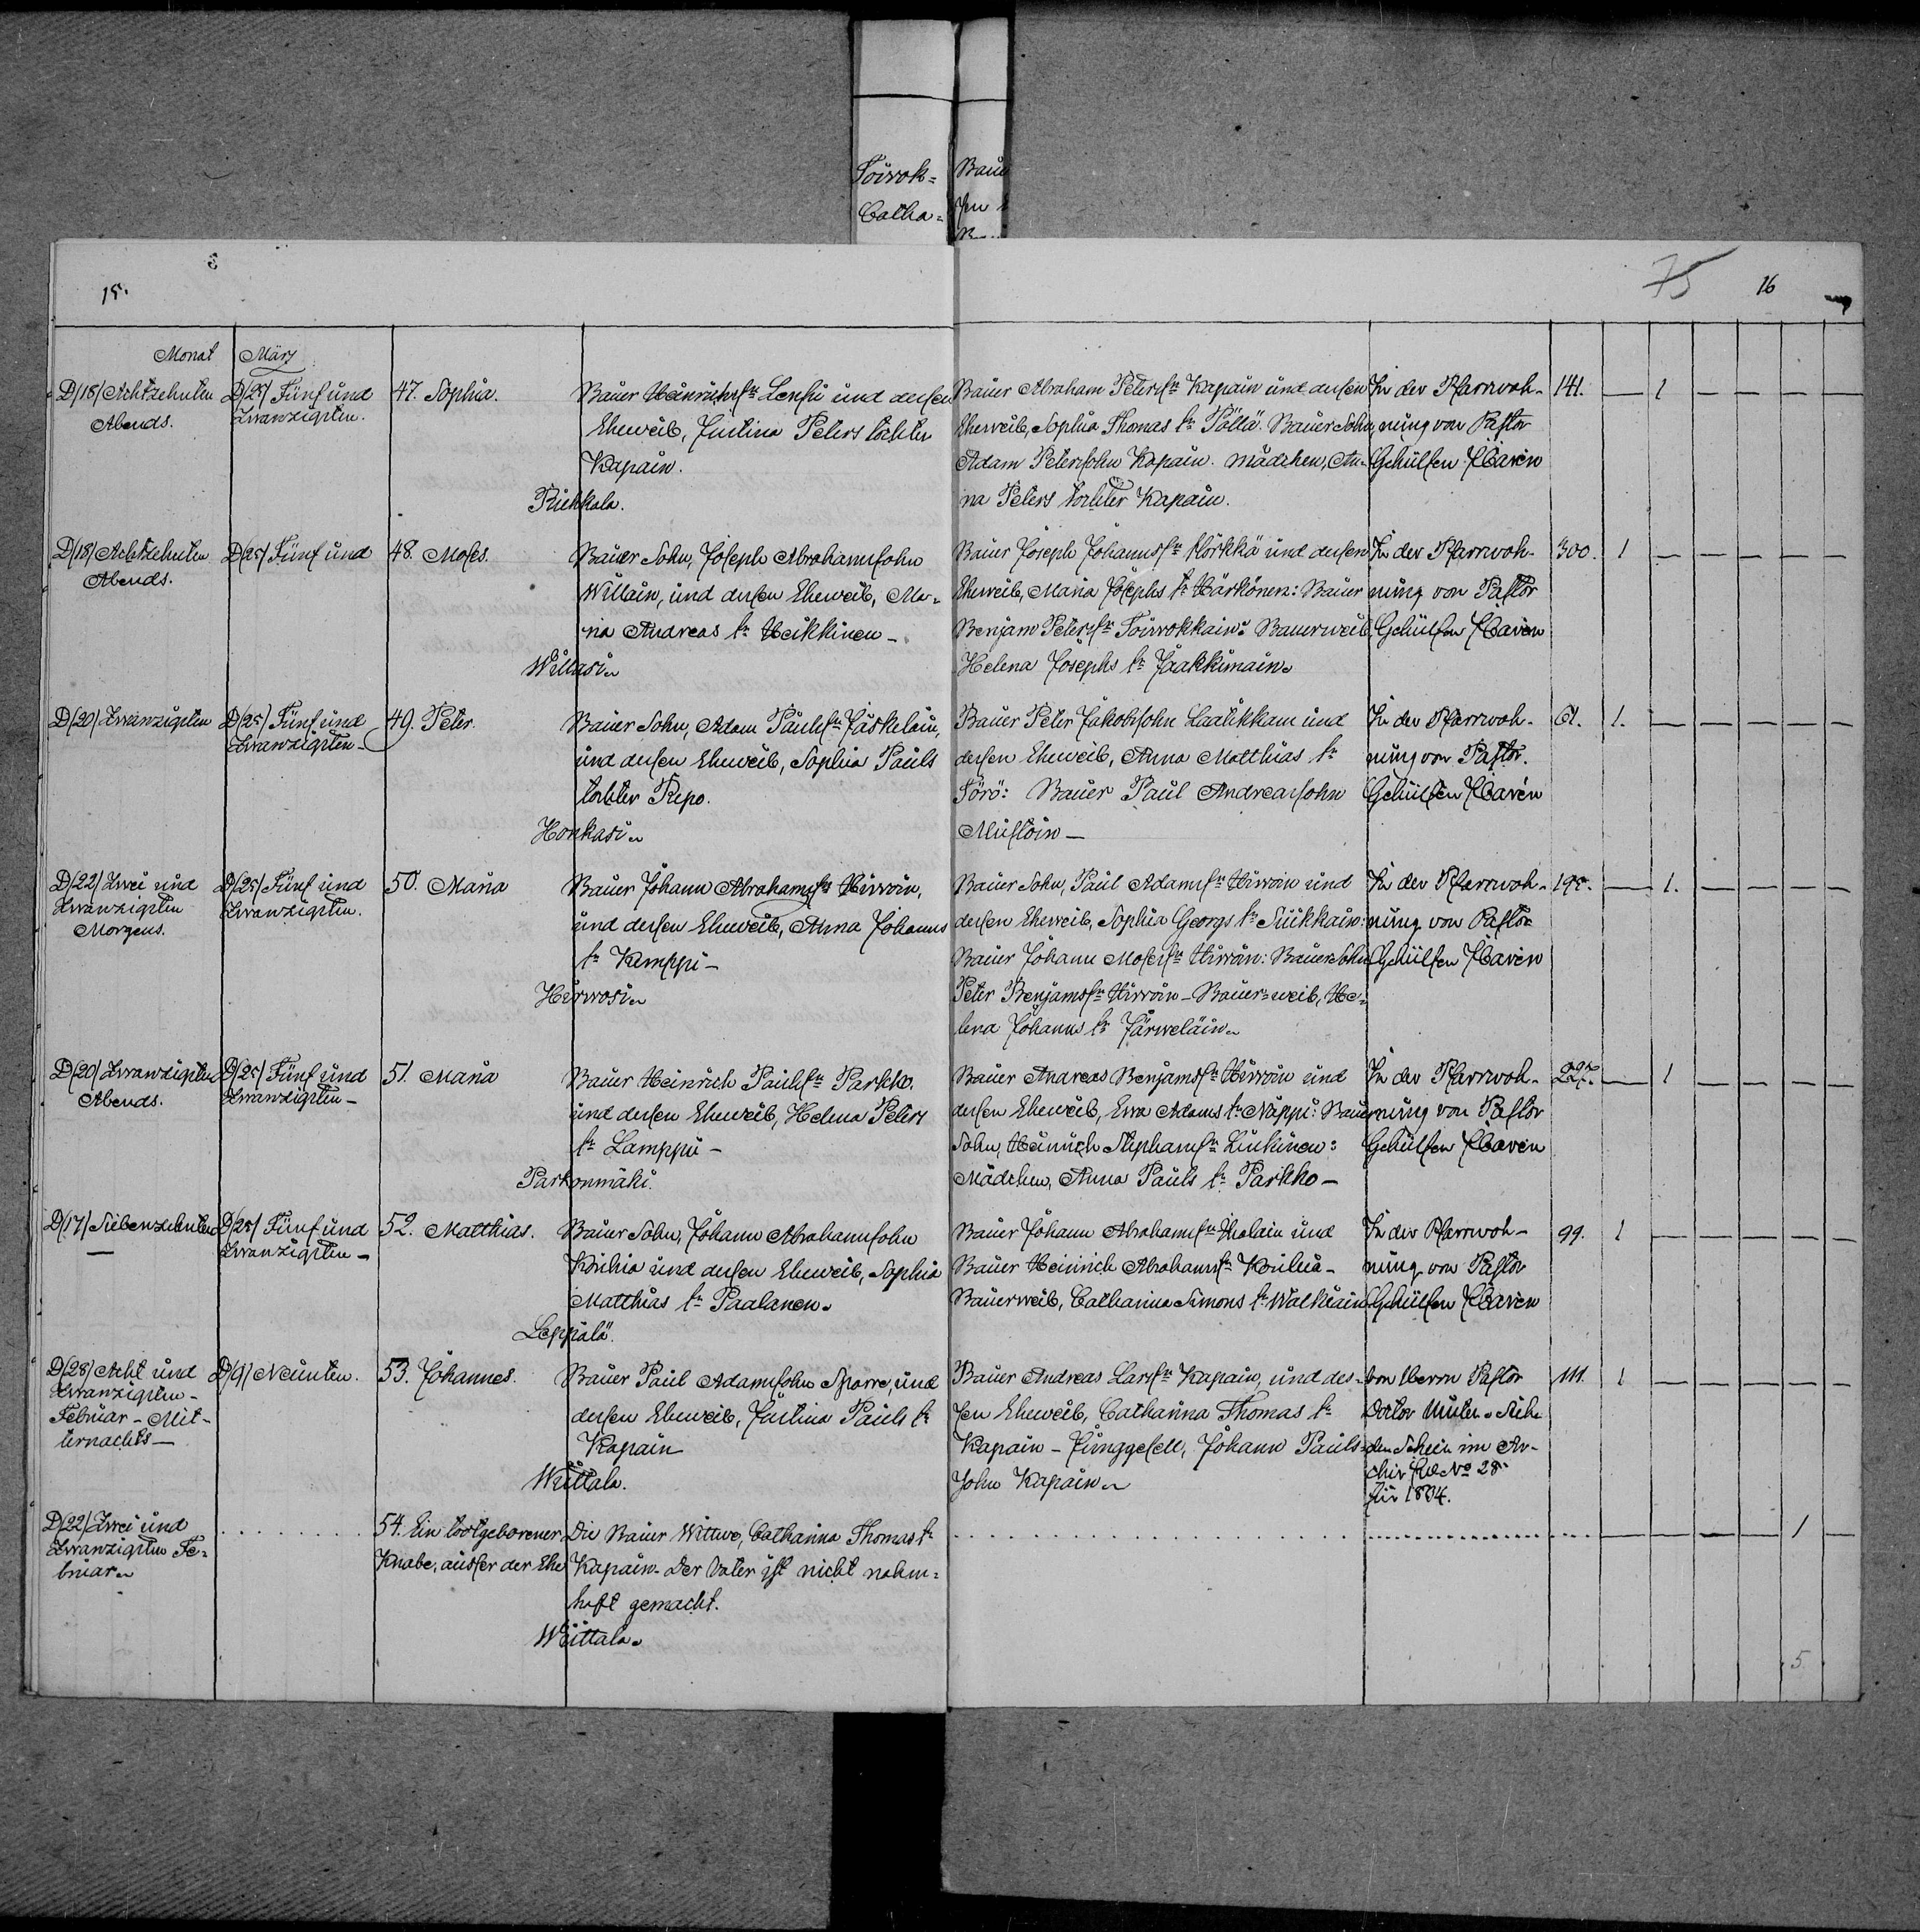 Toivok=
Catha=
Bau
sen
3
15.
75
16
Monat März
D/18/ Achtzehnten
Abends.
D/25/ Fünf und
Zwanzigsten.
47. Sophia.
Bauer Heinrichs sn Lensu und dessen
Eheweib, Justina Peters tochter
Kapain.
Riehkala.
Bauer Abraham Peters sn Kapain und dessen
Eheweib, Sophia Thomas tr Pöllä. Bauer Sohn
Adam Petersohn Kapain. Mädchen, An-
na Peters tochter Kapain.
In der Pfarrwoh-
nung von Pastor
Gehülfen Caven
141. — 1 — — — —
D/18/ Achtzehnten
Abends.
D/25/ Fünf und
48. Moses.
Bauer Sohn, Joseph Abrahamsohn
Willain, und dessen Eheweib, Ma-
ria Andreas tr Heikkinen —
Willasi
Bauer Joseph Johanns sn Horkkä und dessen
Eheweib, Maria Josephs tr Härkönen: Bauer
Benjam Peters sn Toiwokkain: Bauerweib
Helena Josephs tr Jaakkimain
In der Pfarrwoh-
nung von Pastor
Gehülfen Caven
300. 1 — — — — —
D/20/ Zwanzigsten
D/25/ Fünf und
Zwanzigsten —
49. Peter.
Bauer Sohn, Adam Pauls sn Jäskeläin,
und dessen Eheweib, Sophia Pauls
tochter Repo.
Honkasi
Bauer Peter Jakobsohn Laalikkain und
dessen Eheweib, Anna Matthias tr
Törö: Bauer Paul Andreassohn
Mustoin —
In der Pfarrwoh-
nung von Pastor.
Gehülfen Caven
61. 1. — — — — —
D/22/ Zwei und
Zwanzigsten
Morgens.
D/25/ Fünf und
Zwanzigsten.
50. Maria
Bauer Johann Abrahams sn Hirwoin,
und dessen Eheweib, Anna Johanns
tr Kemppi —
Hirwosi
Bauer Sohn, Paul Adams sn Hirwoin und
dessen Eheweib, Sophia Georgs tr Suikkain:
Bauer Johann Moses sn Hirwoin: Bauer Sohn
Peter Benjams sn Hirwoin — Bauer-weib, He-
lena Johanns tr Järweläin
In der Pfarrwoh-
nung von Pastor
Gehülfen Caven
195. — 1. — — — —
D/20/ Zwanzigsten
Abends.
D/25/ Fünf und
Zwanzigsten —
51. Maria
Bauer Heinrich Pauls sn Parkko.
und dessen Eheweib, Helena Peters
tr Lamppu —
Parkonmäki.
Bauer Andreas Benjams sn Hirwoin und
dessen Eheweib, Ewa Adams tr Näppi: Bauer
Sohn, Heinrich Stephans sn Liukinen:
Mädchen, Anna Pauls tr Parkko —
In der Pfarrwoh-
nung von Pastor
Gehülfen Caven
— 1 — — — —
D/17/ Siebenzehnten
—
D/25/ Fünf und
Zwanzigsten —
52. Matthias.
Bauer Sohn, Johann Abrahamsohn
Koihia und dessen Eheweib, Sophia
Matthias tr Paalanen.
Leppälä.
Bauer Johann Abrahams sn und
Bauer Heinrich Abrahams sn Koihia —
Bauerweib, Catharina Simons tr Walkiain
In der Pfarrwoh-
nung von Pastor
Gehülfen Caven
99. 1 — — — — —
D/28/ Acht und
Zwanzigsten —
Februar — Mit-
ternachts —
D/9/ Neunten.
53. Johannes.
Bauer Paul Adamsohn Sporre, und
dessen Eheweib, Justina Pauls tr
Kapain
Wättala.
Bauer Andreas Lars sn Kapain, und des-
sen Eheweib, Catharina Thomas tr
Kapain — Junggesell, Johann Pauls-
sohn Kapain
Von Herrn Pastor
Doctor Siehe
den Schein im Ar-
chiv No 28.
für 1834.
111. 1 — — — — —
D/22/ Zwei und
Zwanzigsten Fe-
bruar
54. Ein todtgeborener
Knabe, ausser der Ehe
Die Bauer Wittwe, Catharina Thomas tr
Kapain — Der Vater ist nicht nahm-
haft gemacht.
Wättala.
— — — — 1 —
5